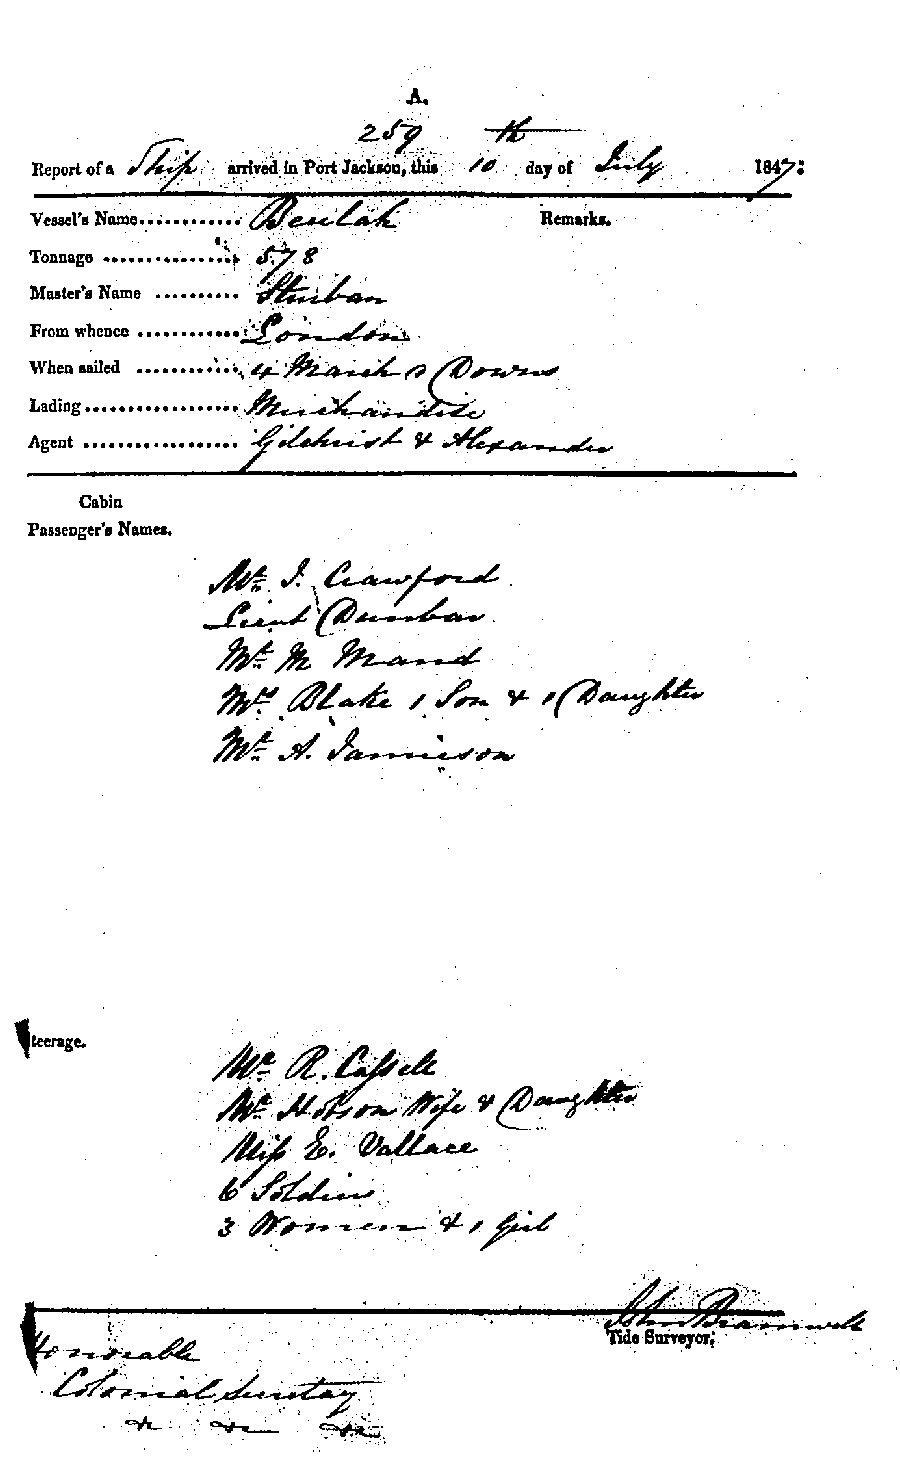 A.
259 th
Report of a Ship arrived in Port Jackson, this 10 day of July 1847:
Vessel's Name Beulah Remarks.
Tonnage 578
Master's Name
From whence London
When sailed 4 March Downs
Lading Merchandise
Agent Gilchrist & Alexander
Cabin
Passenger's Names.
Mr. J. Crawford
Lieut Dunbar
Mr. M
Mrs. Blake 1 Son & 1 Daughter
Mr. A. Jamieson
teerage.
Mr. R. Cassell
Mr. Hobson Wife & Daughter
Miss E. Vallace
6 Soldiers
3 Women & 1 Girl
John Bramwell
Tide Surveyor.
Honorable
Colonial Secretay
&c &c &c